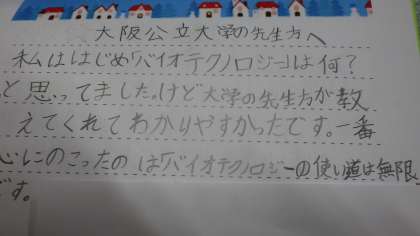 大阪公立大学の先生方へ
私ははじめ「バイオテクノロジー」は何?
と思ってました。けど大学の先生方が教
えてくれてわかりやすかったです。一番
心にのこったのは「バイオテクノロジーの使い道は無限
です。